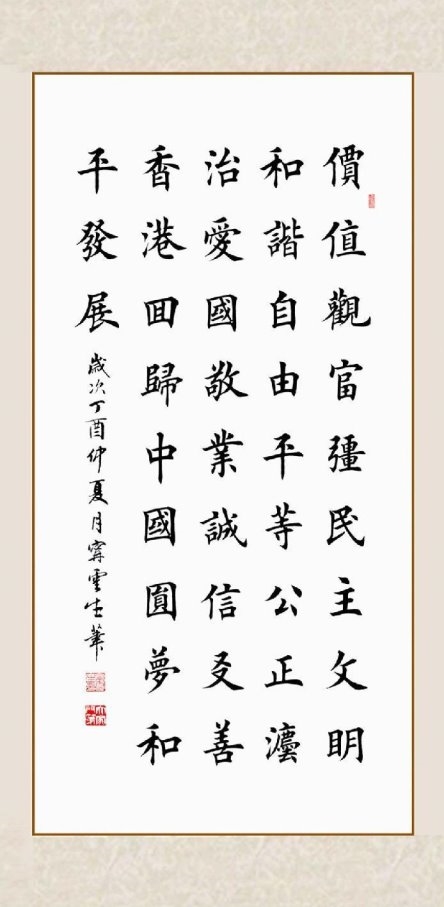 價值觀富彊民主文明
和諧自由平等公正灋
治愛國敬業誠信友善
香港回歸中國圓夢和
平發展
歲次丁酉仲夏月寗雲生華